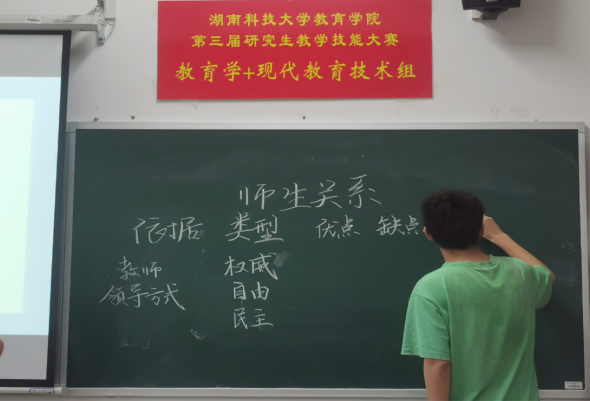 湖南科技大学教育学院
第三届研究生教学技能大赛
教育学+现代教育技术组
师生关系
依据 类型 优点 缺点
教师 权威
领导方式 自由
民主